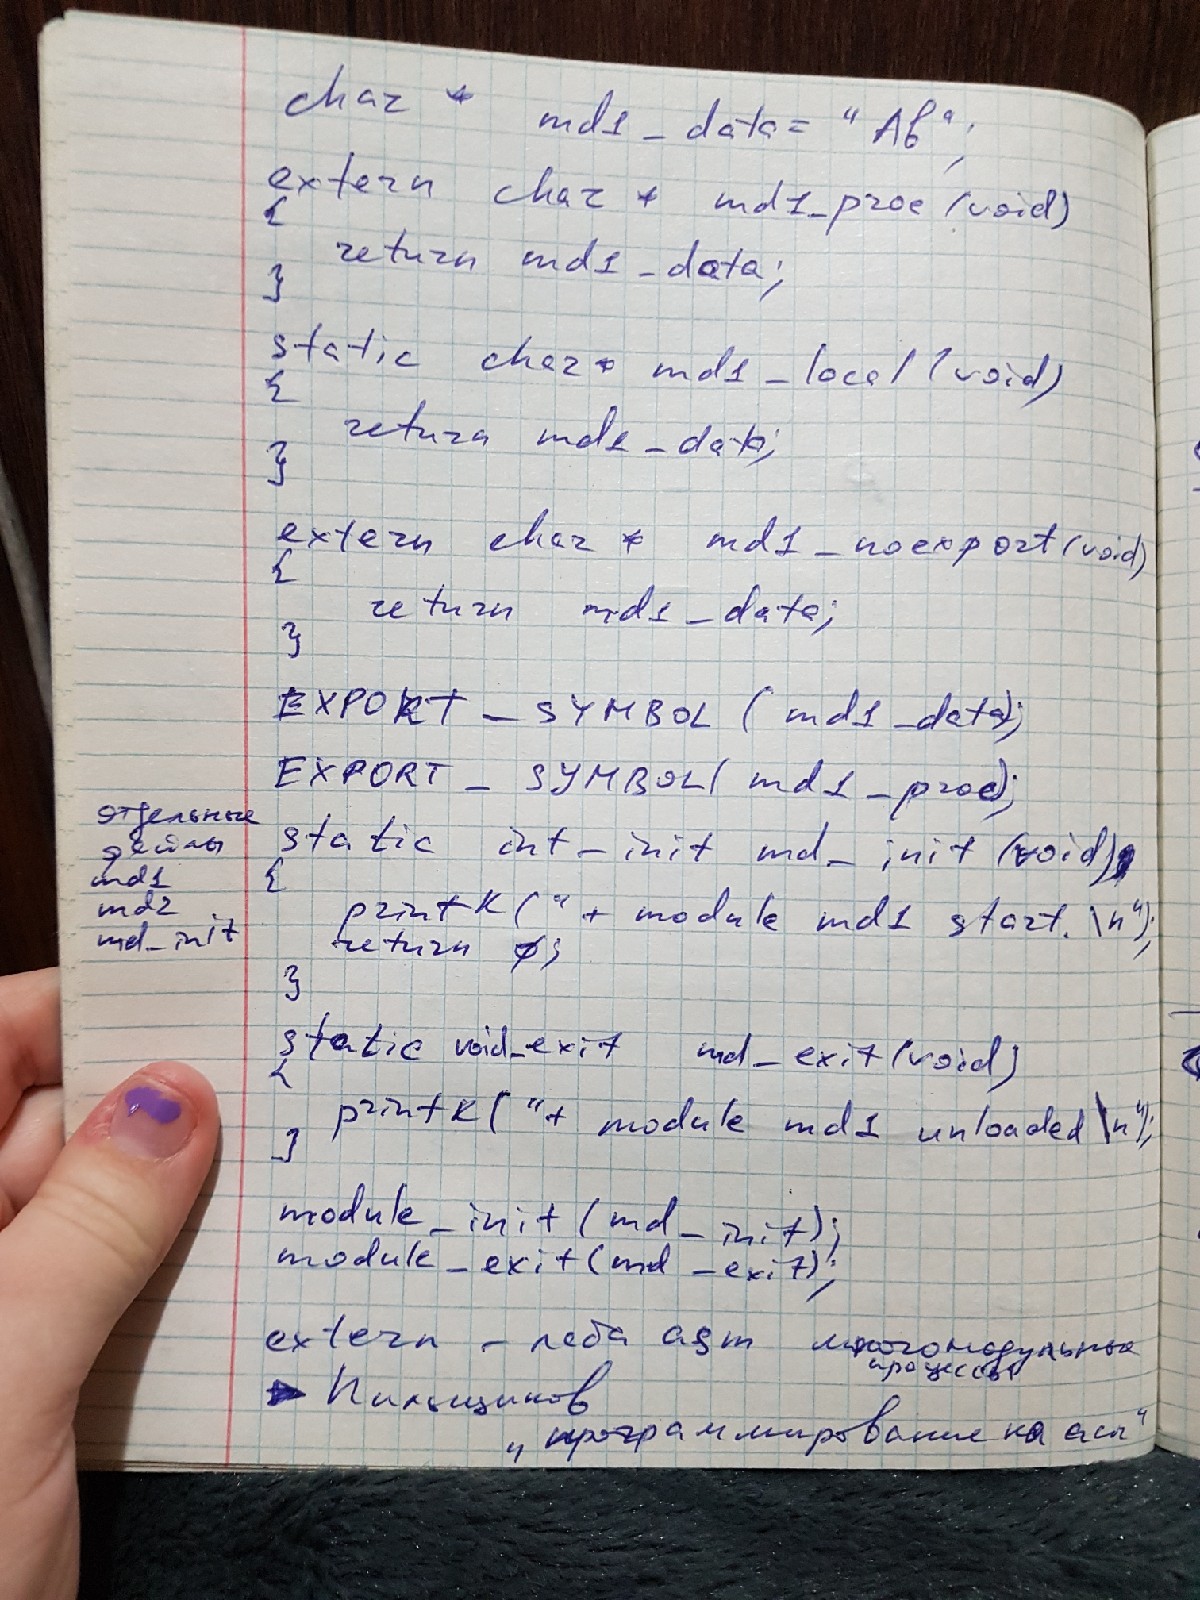 char * md1_data= "Аб";
extern char * md1_proc (void)
{
return md1_data;
}
static char* md1_local (void)
{
return md1_data;
}
extern char * md1_noexport (void)
{
return md1_data;
}
EXPORT_SYMBOL ( md1_data);
EXPORT_SYMBOL( md1_proc);
отдельные
файлы
md1
md2
md_init
static int_init md_init (void)
{
printk ("+ module md1 start. \n");
return 0;
}
static void_exit md_exit (void)
{
printk ( "+ module md1 unloaded \n");
}
module_init (md_init);
module_exit (md_exit);
extern - asm многомодульные
процессы
Пильщиков
"программирование на асм"